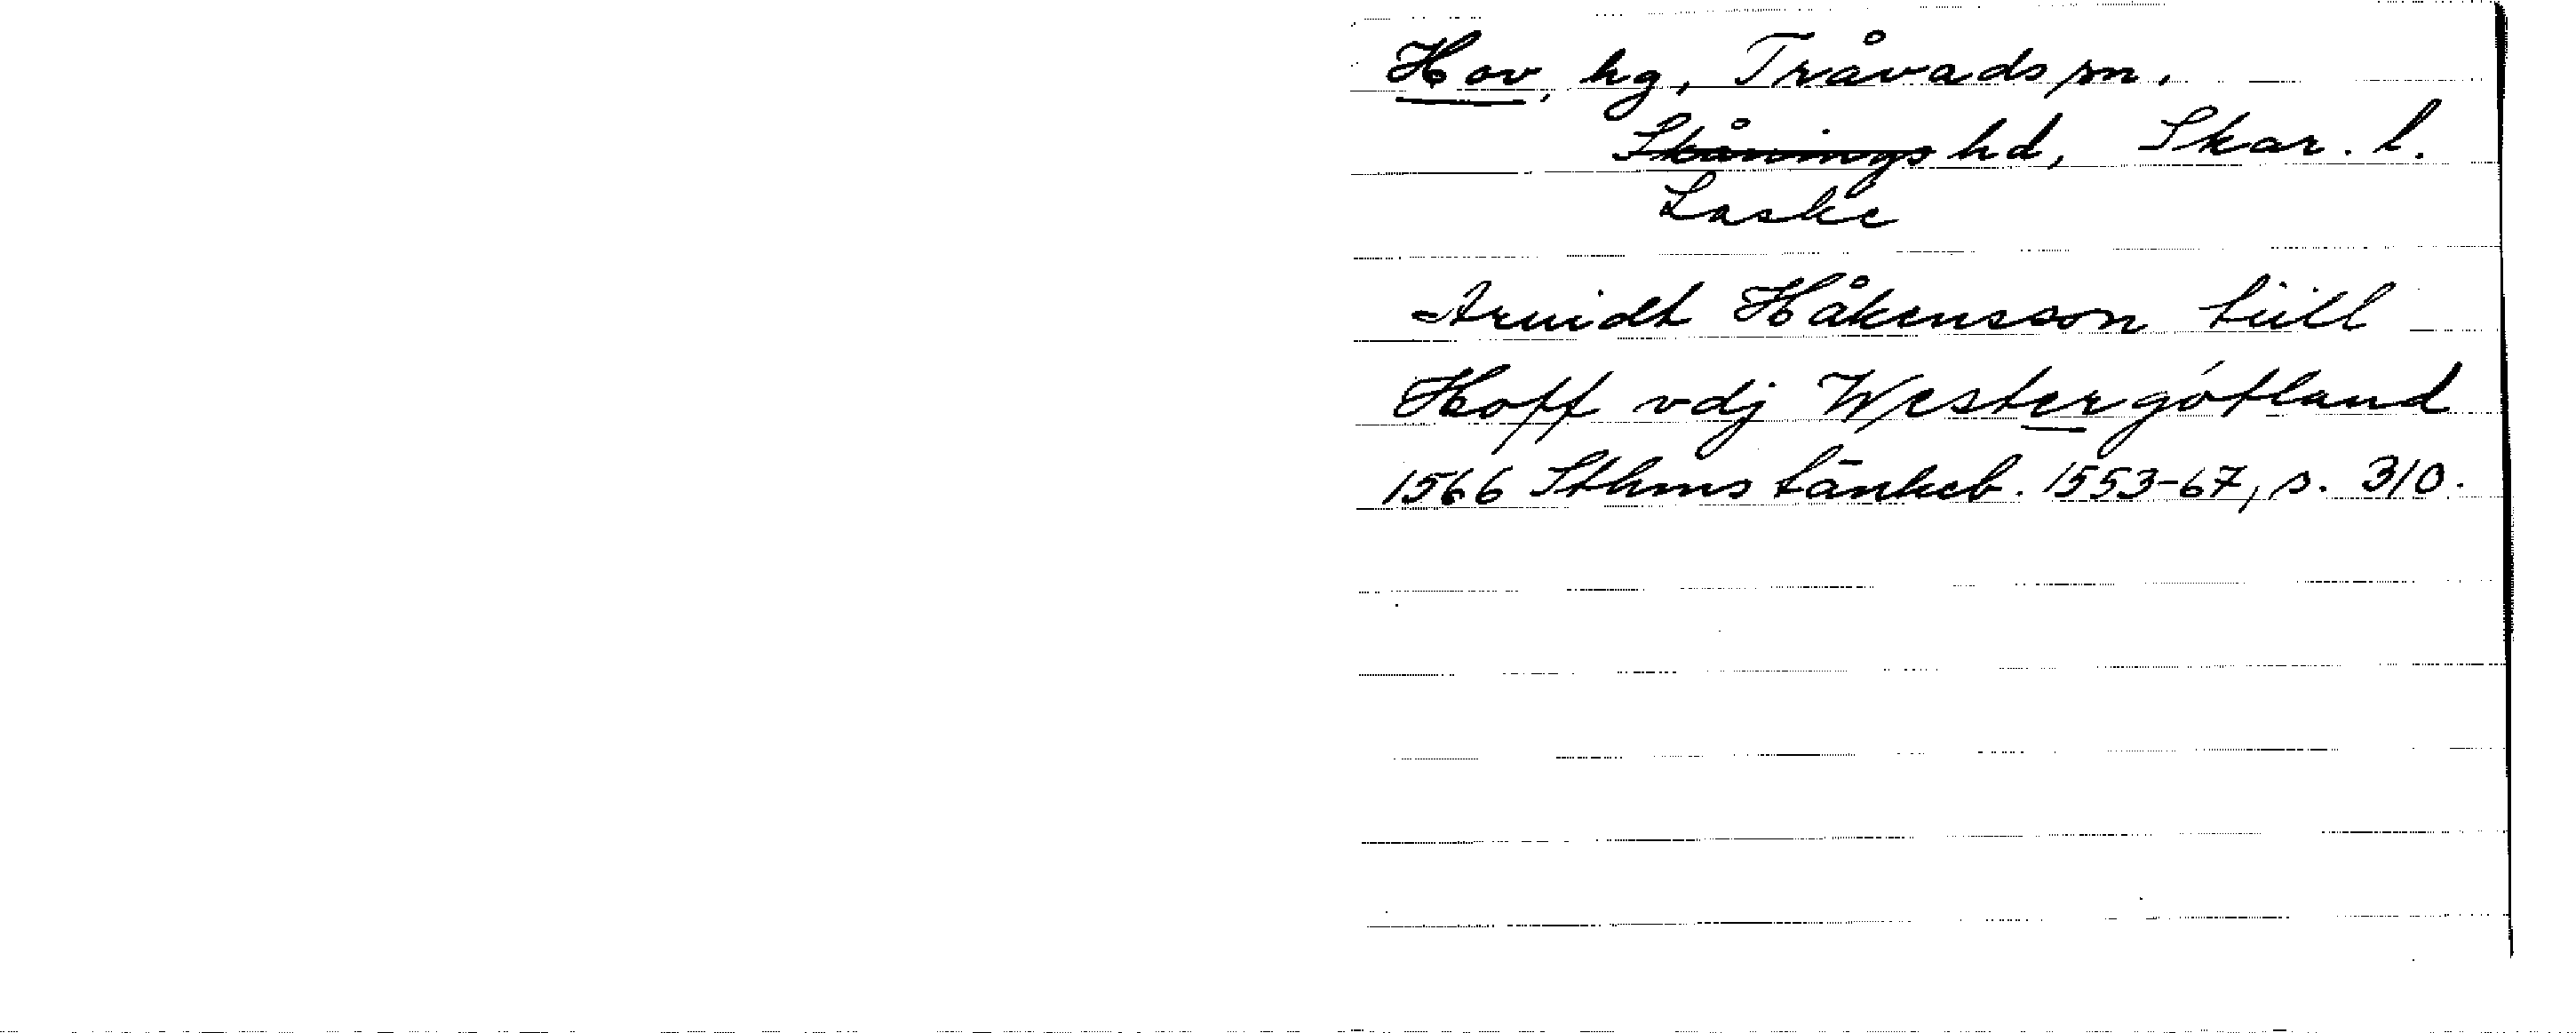 Hov, hg, Tråvads sn,
Skånings hd, Skar. l.
Laske
Aruidh Håkensson tiill
Hoff vdj Westergötland
1566 Sthms tänkeb. 1553-67, s. 310.